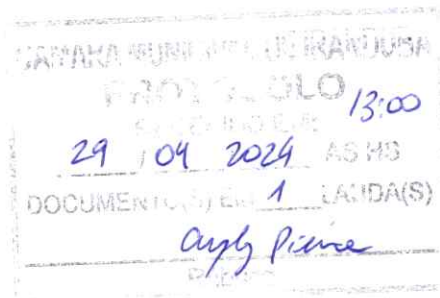 CÂMARA MUNICIPAL DE IRANDUBA
PROTOCOLO
13:00
29 / 04 2024 AS HS
DOCUMENTO(S) EM 1 LAUDA(S)